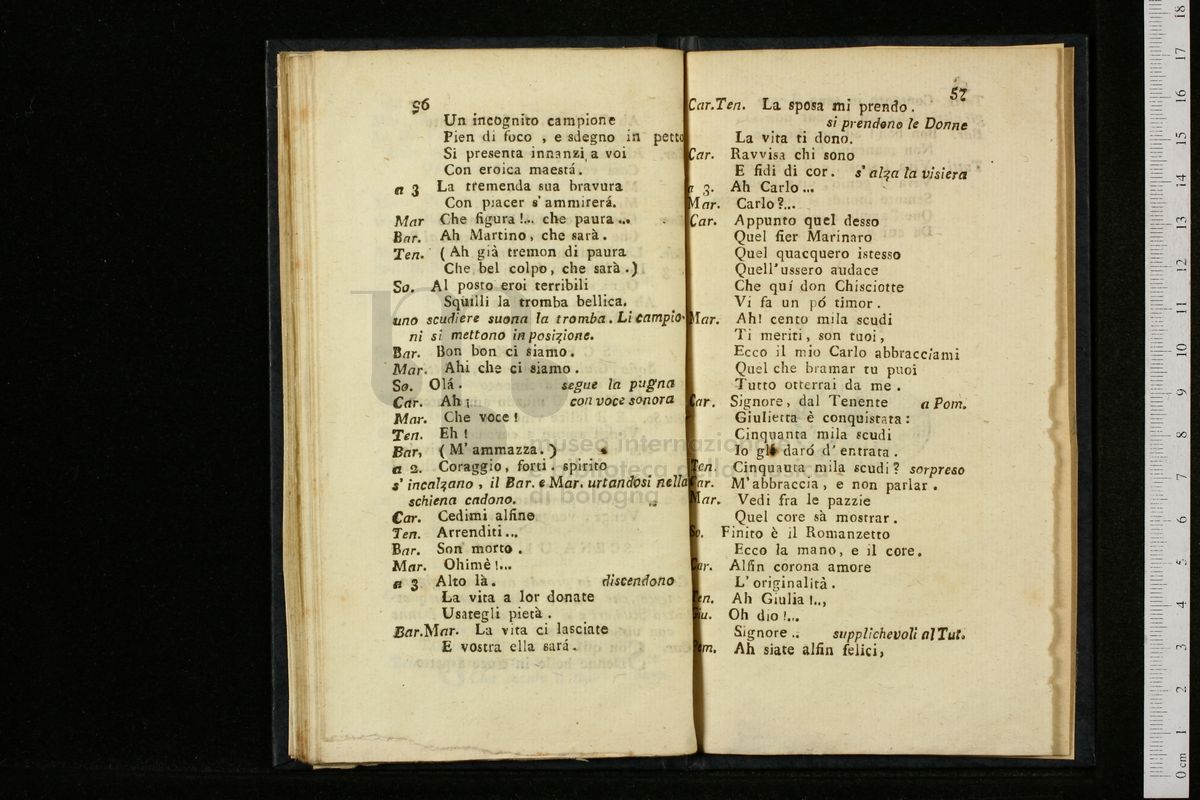 56
Un incognito campione
Pien di foco , e sdegno in petto
Si presenta innanzi a voi
Con eroica maestá.
a 3 La tremenda sua bravura
Con piacer s' ammirerá.
Mar Che figura !... che paura ...
Bar. Ah Martino, che sarà.
Ten. (Ah già tremon di paura
Che bel colpo, che sarà.)
So. Al posto eroi terribili
Squilli la tromba bellica.
uno scudiere suona la tromba. Li campio-
ni si mettono in posizione.
Bar. Bon bon ci siamo.
Mar. Ahi che ci siamo.
So. Olá. segue la pugna
Car. Ah ¡ con voce sonora
Mar. Che voce !
Ten. Eh !
Bar, (M' ammazza.)
a 2. Coraggio, forti. spirito
s' incalzano , il Bar. e Mar. urtandosi nella
schiena cadono.
Car. Cedimi alfine
Ten. Arrenditi...
Bar. Son morto.
Mar. Ohimè !...
a 3 Alto là. discendono
La vita a lor donate
Usategli pietà.
Bar.Mar. La vita ci lasciate
E vostra ella sará.
57
Car.Ten. La sposa mi prendo.
si prendono le Donne
La vita ti dono.
Car. Ravvisa chi sono
E fidi di cor. s' alza la visiera
a 3. Ah Carlo...
Mar. Carlo?...
Car. Appunto quel desso
Quel fier Marinaro
Quel quacquero istesso
Quell' ussero audace
Che quí don Chisciotte
Vi fa un pó timor.
Mar. Ah! cento mila scudi
Ti meriti, son tuoi,
Ecco il mio Carlo abbracciami
Quel che bramar tu puoi
Tutto otterrai da me.
Car. Signore, dal Tenente a Pom.
Giulietta è conquistata:
Cinquanta mila scudi
Io gli daró d' entrata.
Ten. Cinquanta mila scudi? sorpreso
Car. M' abbraccia, e non parlar.
Mar. Vedi fra le pazzie
Quel core sà mostrar.
So. Finito è il Romanzetto
Ecco la mano, e il core.
Car. Alfin corona amore
L' originalità.
Ten. Ah Giulia !..,
Giu. Oh dio !...
Signore .. supplichevoli al Tut.
Pom. Ah siate alfin felici,
museo internazionale
e biblioteca della musica
di bologna
0 cm 1 2 3 4 5 6 7 8 9 10 11 12 13 14 15 16 17 18